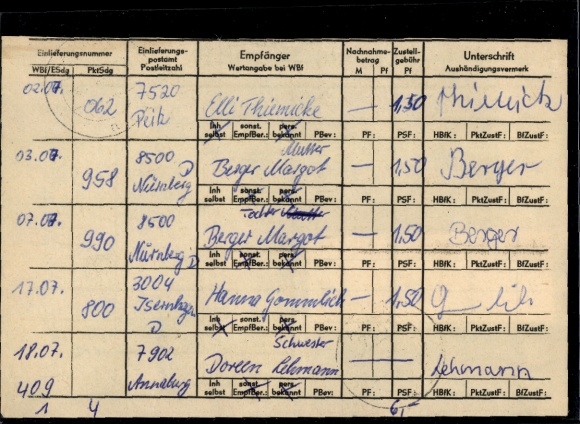 Einlieferungsnummer Einlieferungspostamt Postleitzahl Empfänger Wertangabe bei WBf Nachnahmebetrag Zustellgebühr Unterschrift Aushändigungsvermerk
WBf/ESdg PktSdg M Pf Pf
02.07. 7520
062 Peitz Elli Thiemicke — 1,50 Thiemicke
Inh selbst sonst. EmpfBer.: pers. bekannt PBev: PF: PSF: HBfK: PktZustF: BfZustF:
03.07. 8500 D Mutter
958 Nürnberg Berger Margot — 1,50 Berger
Inh selbst sonst. EmpfBer.: pers. bekannt PBev: PF: PSF: HBfK: PktZustF: BfZustF:
07.07. 8500 Tochter
990 Nürnberg D Berger Margot — 1,50 Berger
Inh selbst sonst. EmpfBer.: pers. bekannt PBev: PF: PSF: HBfK: PktZustF: BfZustF:
17.07. 3004
800 Isernhagen D Hanna Gommlich — 1,50
Inh selbst sonst. EmpfBer.: pers. bekannt PBev: PF: PSF: HBfK: PktZustF: BfZustF:
18.07. 7902 Schwester
409 Annaburg Doreen Lehmann — Lehmann
Inh selbst sonst. EmpfBer.: pers. bekannt PBev: PF: PSF: HBfK: PktZustF: BfZustF:
1 4 6,-